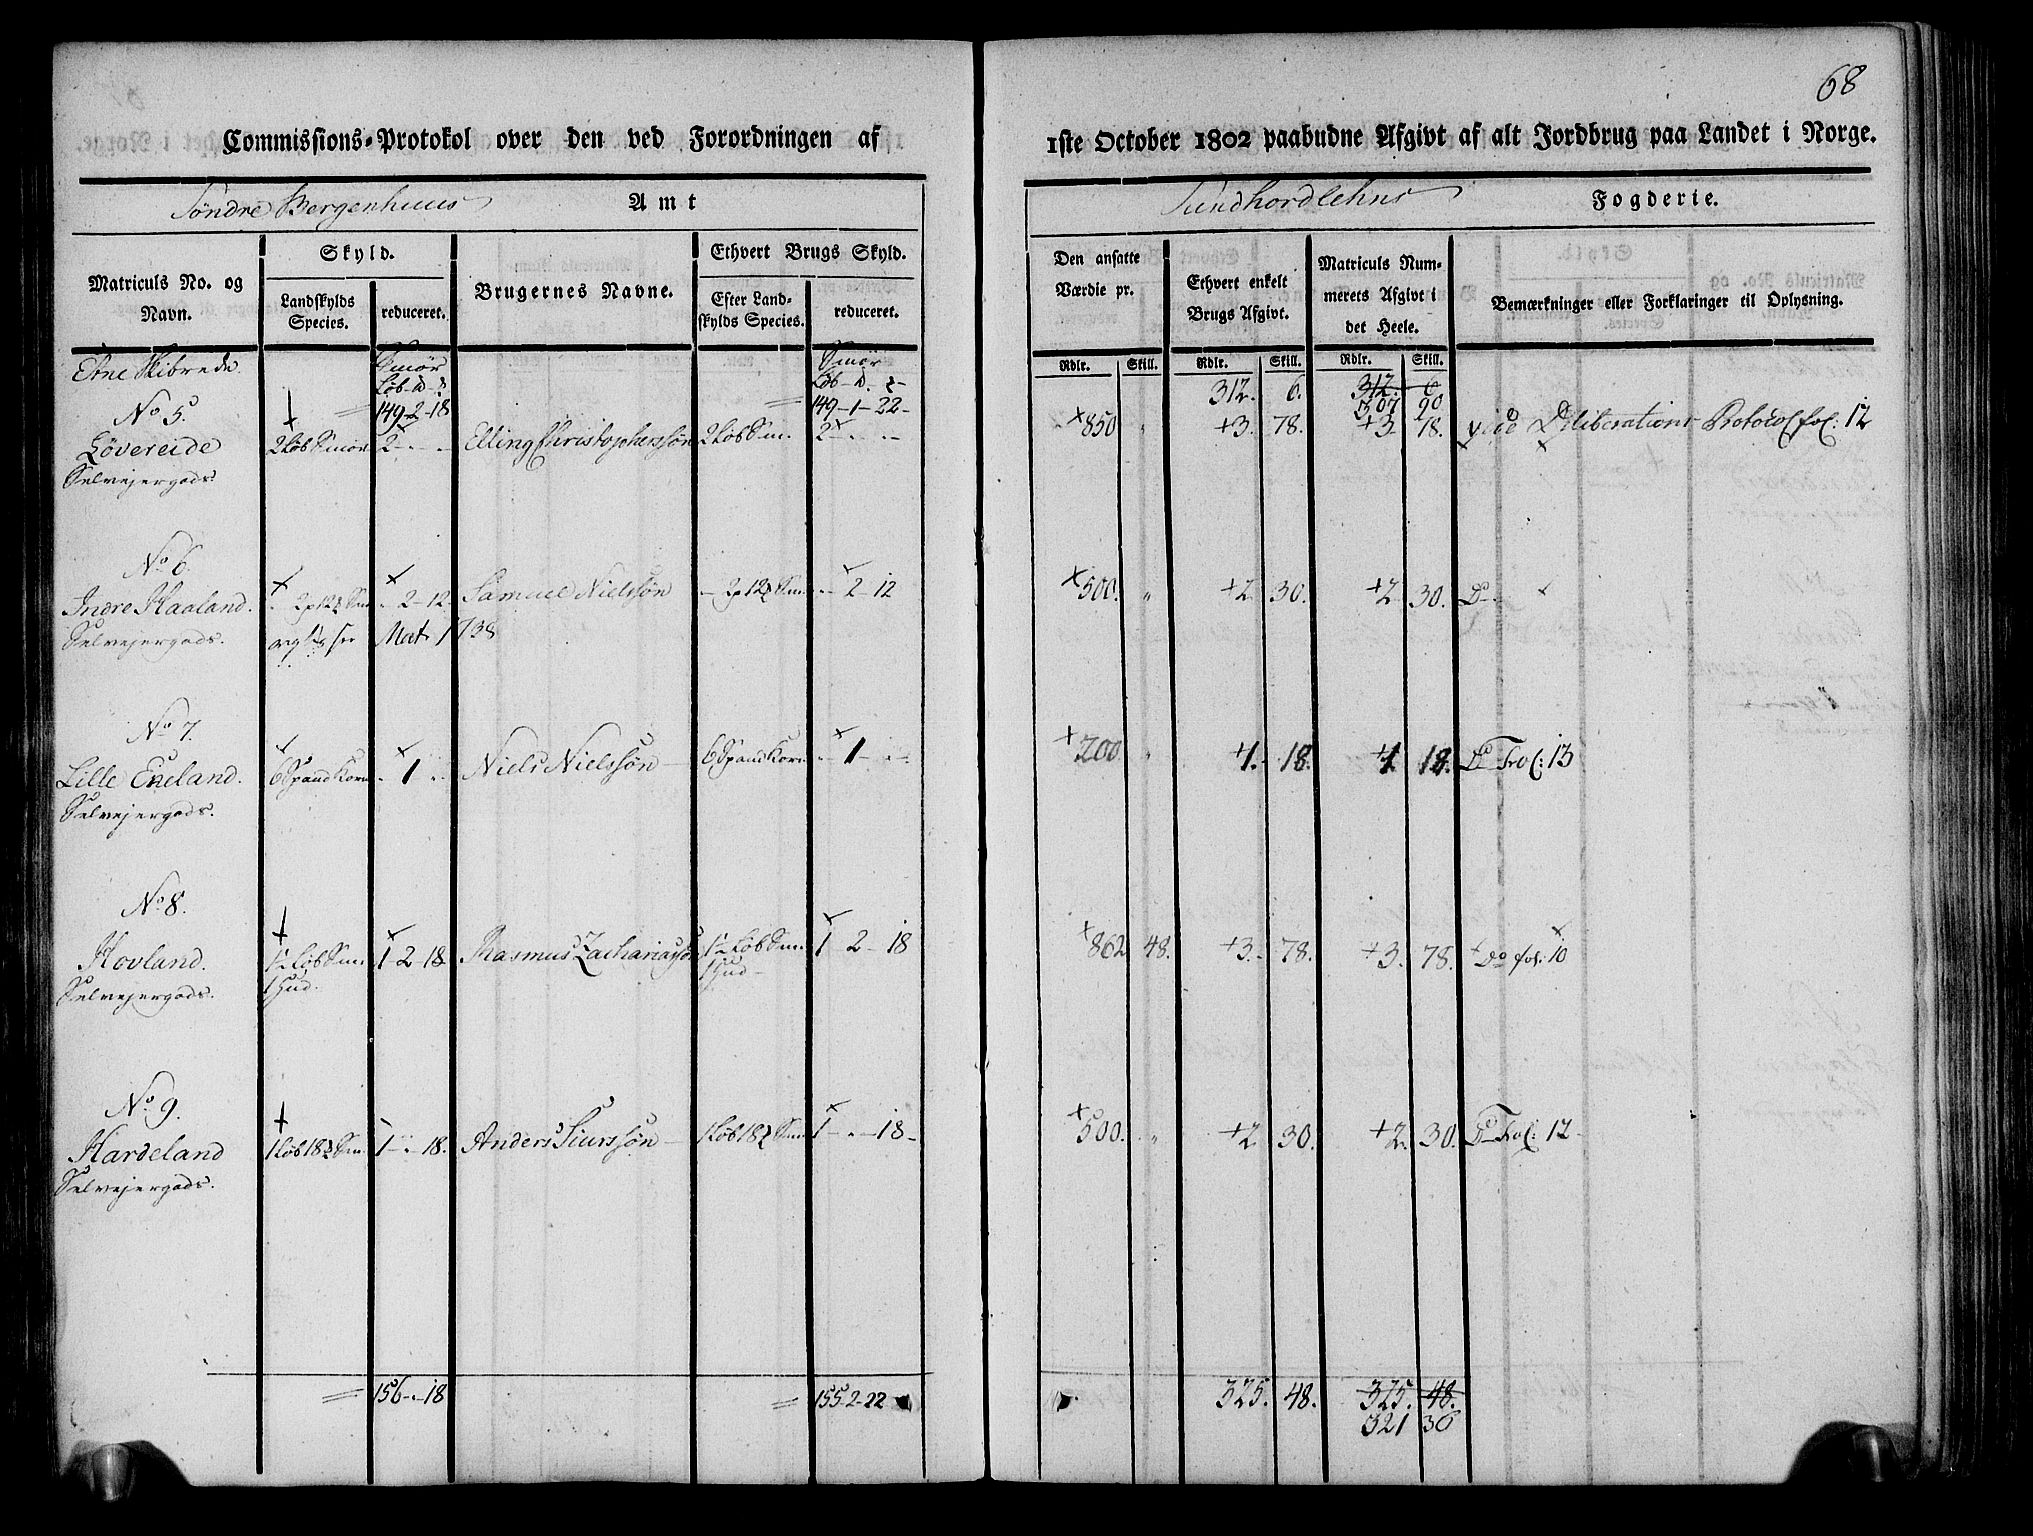 68
Commissions-Protokol over den ved Forordningen af
1ste October 1802 paabudne Afgivt af alt Jordbrug paa Landet i Norge.
Söndre Bergenhuus Amt
Sundhordlehns Fogderie.
Matriculs No. og Navn.
Skyld.
Landskylds Species.
reduceret.
Brugernes Navne.
Ethvert Brugs Skyld.
Efter Landskylds Species.
reduceret.
Den ansatte Værdie pr.
Ethvert enkelt Brugs Afgivt.
Matriculs Nummerets Afgivt i det Heele.
Bemærkninger eller Forklaringer til Oplysning.
Rdlr. Skill. Rdlr. Skill. Rdlr. Skill.
Etne Skibrede Smör Smör
Löb - -
149-2-18 149-1-22- 312. 6. 312. 6
307 90
No 5.
Lövereide 2 Löb Smör 2 - . - - Elling Christophersön 2 Löb Sm. 2 - . - - 850 " 3. 78. 3 78. vide Deliberations Protocol fol: 12
Selvejergods.
No 6.
Indre Haaland. 2 p 12 Sm - 2-12- Samuel Nielssön - 2 p 12 Sm - 2-12 500. " 2 30. 2 30. Do.
Selvejergods. Mat. 1738
No 7.
Lille Eneland. 6 Spand Korn - 1 - - Niels Nielssön 6 Spand Korn - 1 - - 200. " 1. 18. 1 18. Do Fol: 13
Selvejergods.
No 8.
Hovland. 1½ Löb Sm. 1-2-18 Rasmus Zachariasön 1½ Löb Sm. 1 2-18 862 48. 3. 78. 3. 78. Do fol: 10
Selvejergods. 1 Hud. 1 Hud -
No 9.
Hardeland 1 Löb 18 Sm. 1-.-18. Anders Siurssön 1 Löb 18 Sm 1-.-18- 500. " 2 30. 2. 30. Do Fol: 12
Selvejergods.
156-.-18 155-2-22 325. 48. 325. 48.
321 36